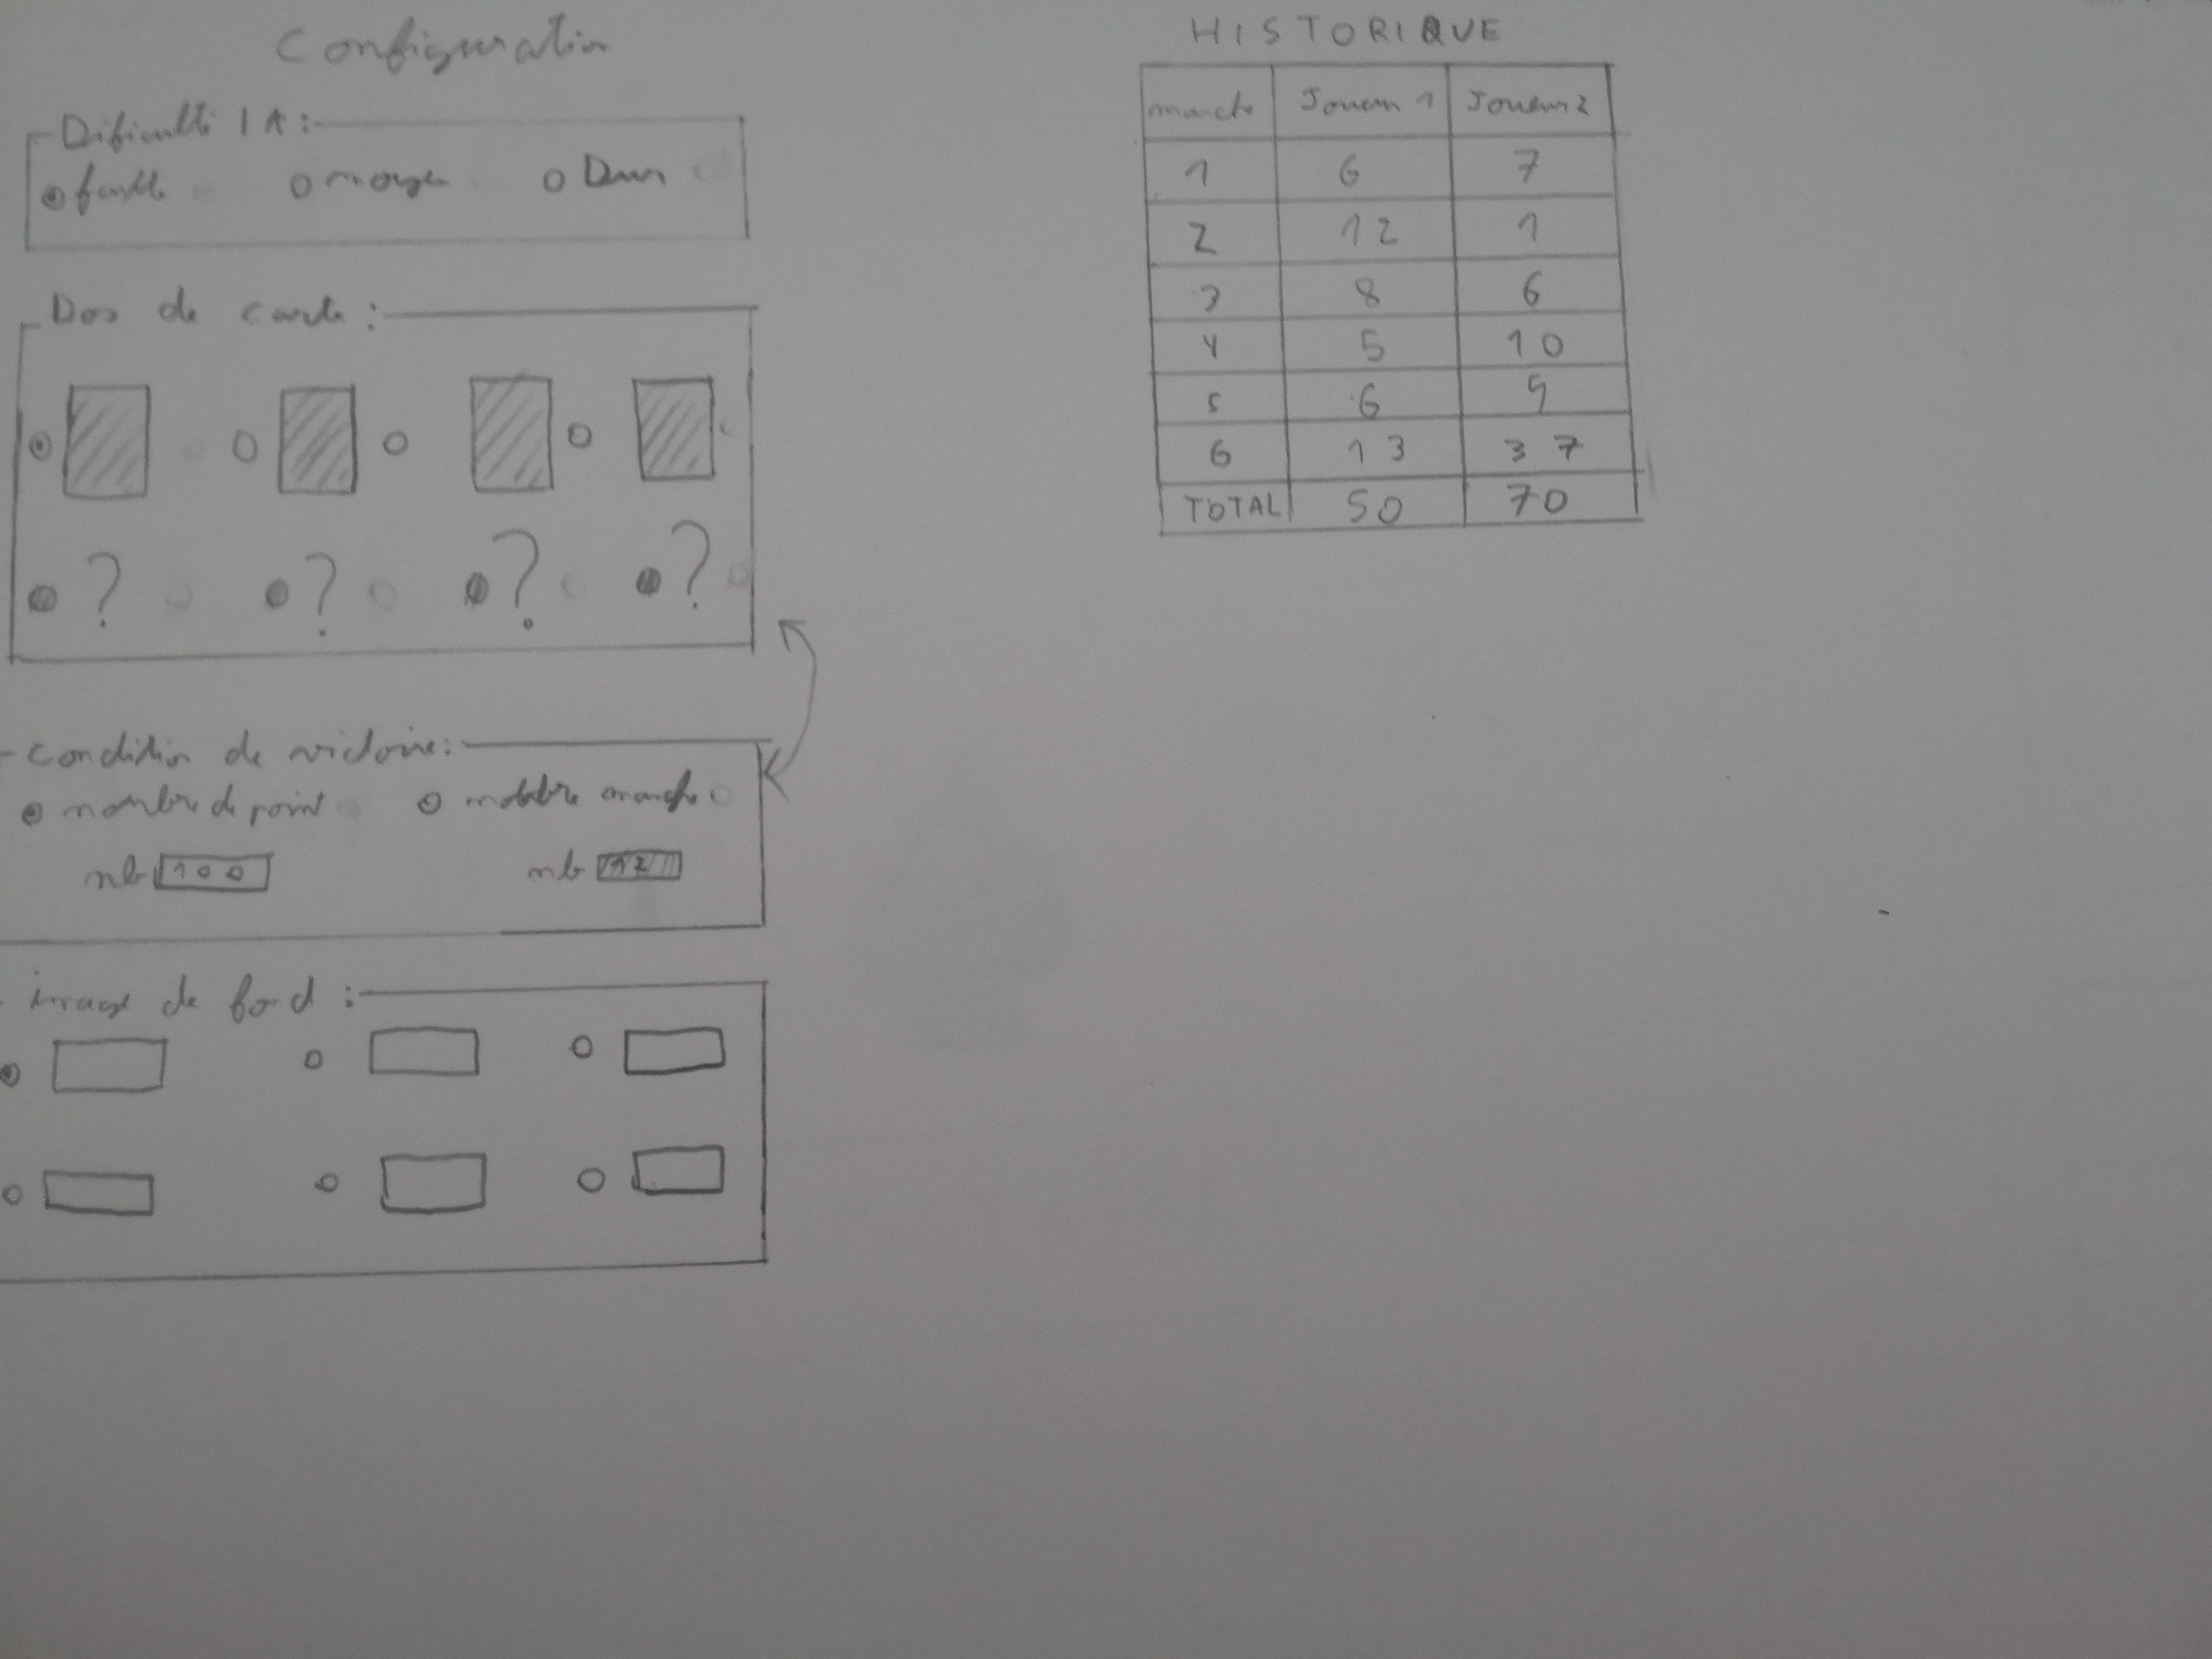 Configuration
Dificulté IA :
faible moyen Dur
Dos de carte :
? ? ? ?
Condition de victoire :
nombre de point nombre manche
nb 100 nb 12
image de fond :
HISTORIQUE
manche Joueur 1 Joueur 2
1 6 7
2 12 1
3 8 6
4 5 10
5 6 9
6 13 37
TOTAL 50 70